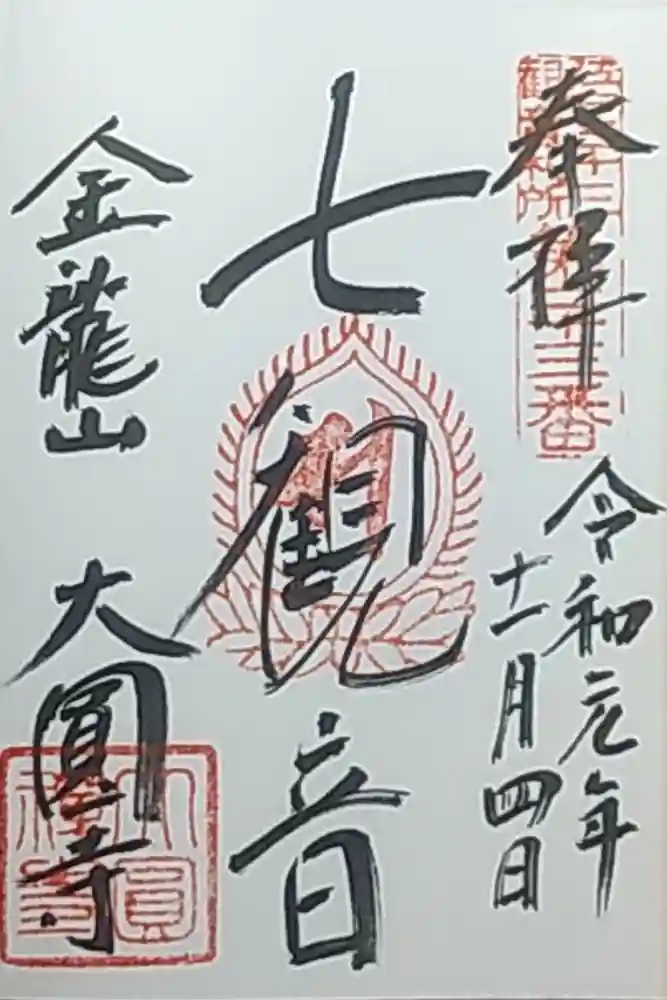 奉拝
令和元年
十一月四日
七観音
金龍山
大圓寺